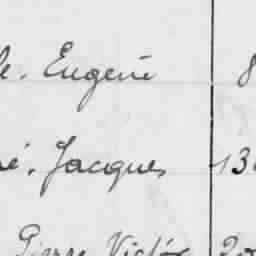 le. Eugène 8
né. Jacques 13
Pierre Victor 20